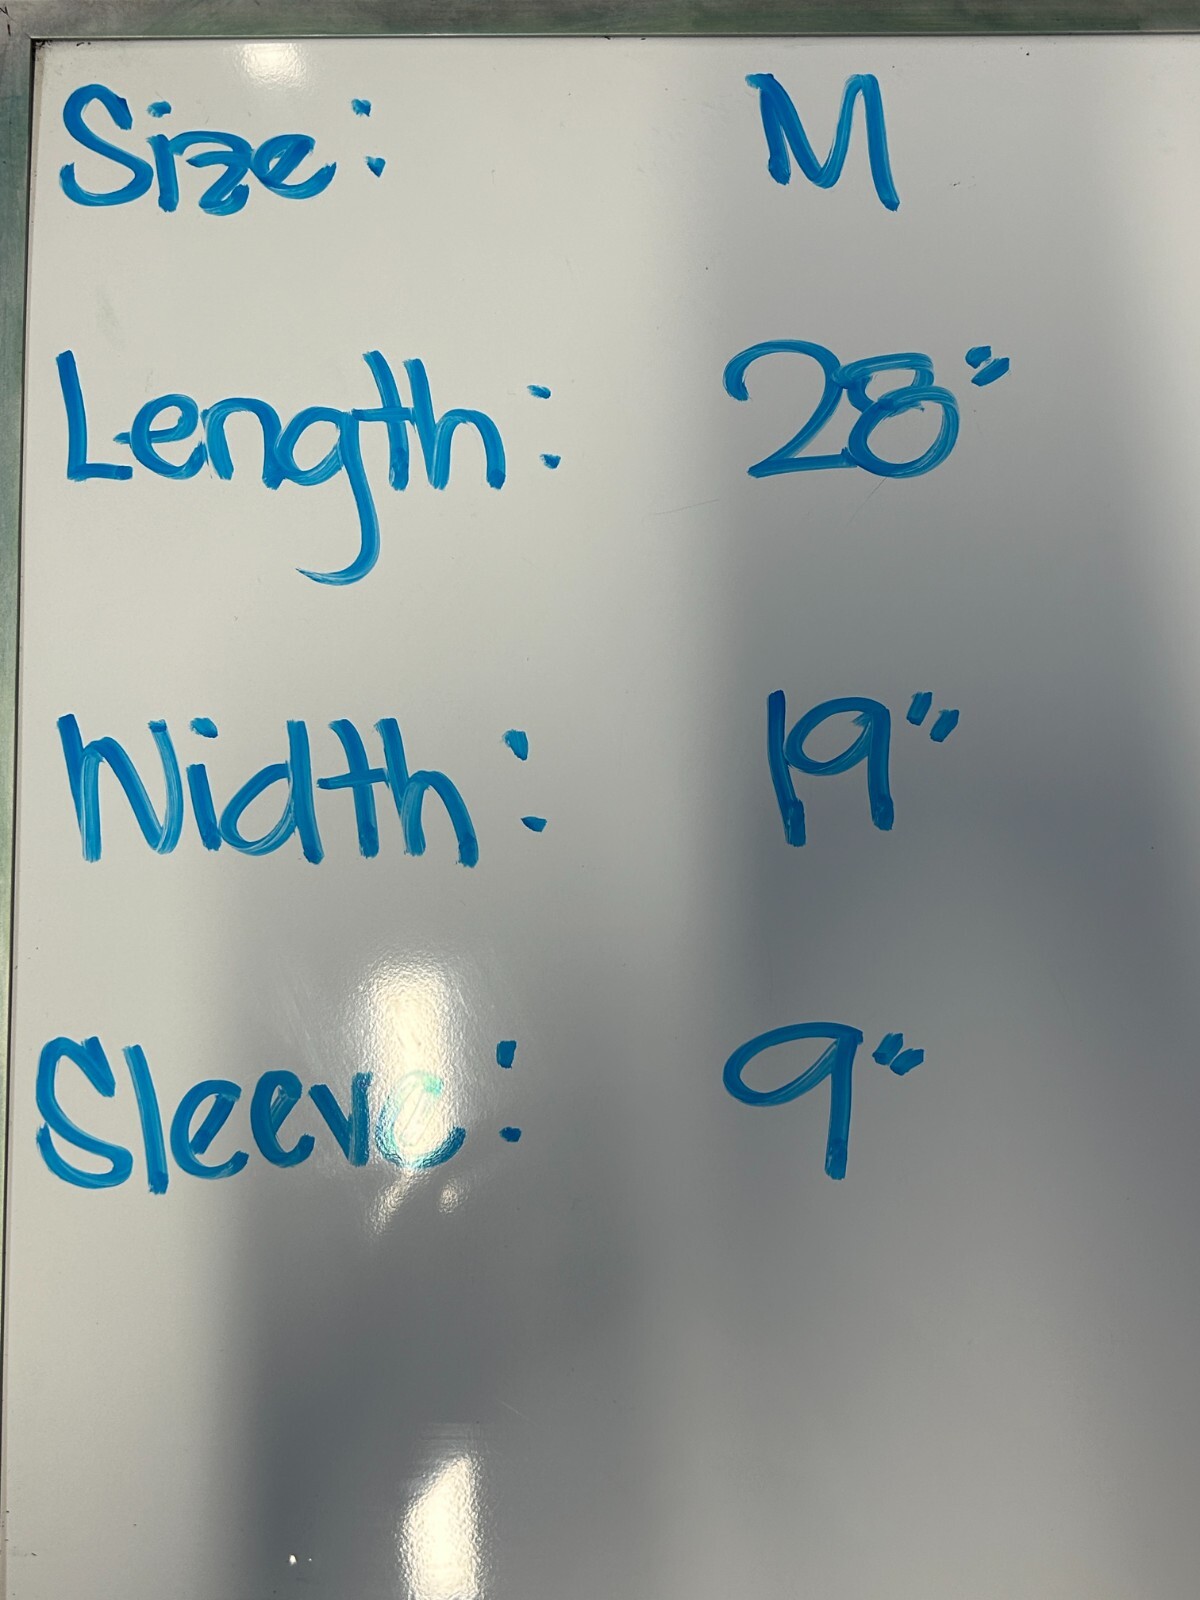 Size: M
Length: 28"
Width: 19"
Sleeve: 9"